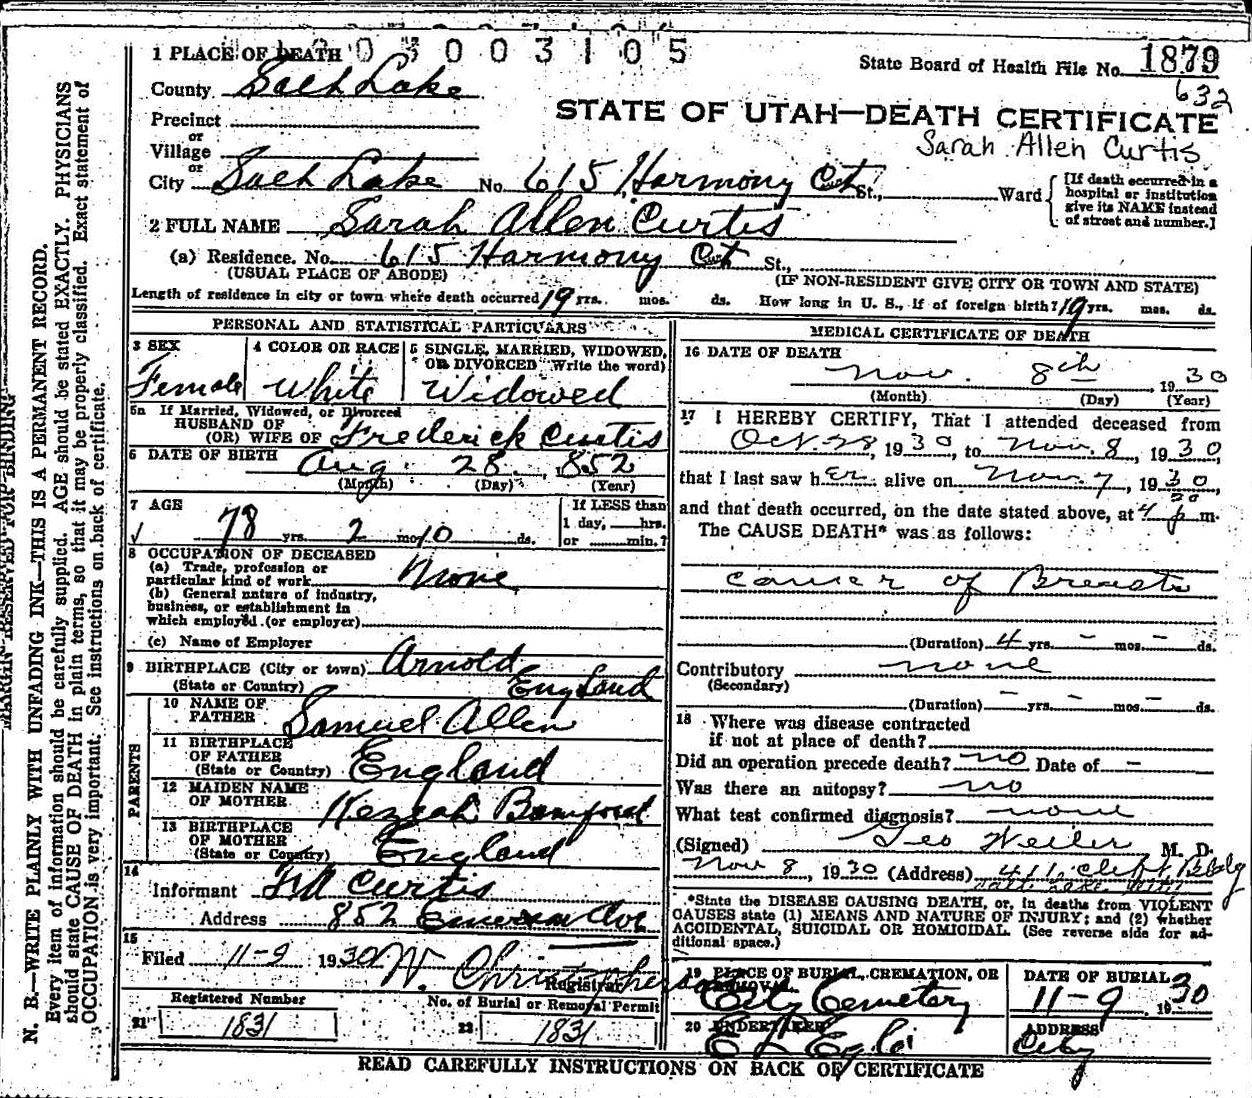 3003105
1 PLACE OF DEATH
State Board of Health File No. 1879
632
County Salt Lake
STATE OF UTAH—DEATH CERTIFICATE
Sarah Allen Curtis
Precinct
or
Village
or
City Salt Lake No. 615 Harmony Crt St., Ward
[If death occurred in a hospital or institution give its NAME instead of street and number.]
2 FULL NAME Sarah Allen Curtis
(a) Residence. No. 615 Harmony Crt St.,
(USUAL PLACE OF ABODE) (IF NON-RESIDENT GIVE CITY OR TOWN AND STATE)
Length of residence in city or town where death occurred 19 yrs. mos. ds. How long in U. S., if of foreign birth? 19 yrs. mos. ds.
PERSONAL AND STATISTICAL PARTICULARS
3 SEX
Female
4 COLOR OR RACE
White
5 SINGLE, MARRIED, WIDOWED,
OR DIVORCED (Write the word)
Widowed
5a If Married, Widowed, or Divorced
HUSBAND OF
(OR) WIFE OF Frederick Curtis
6 DATE OF BIRTH Aug. 28, 1852
(Month) (Day) (Year)
7 AGE
78 yrs. 2 mo 10 ds.
If LESS than
1 day, hrs.
or min.?
8 OCCUPATION OF DECEASED
(a) Trade, profession or
particular kind of work None
(b) General nature of industry,
business, or establishment in
which employed (or employer)
(c) Name of Employer
9 BIRTHPLACE (City or town) Arnold
(State or Country) England
PARENTS
10 NAME OF
FATHER Samuel Allen
11 BIRTHPLACE
OF FATHER
(State or Country) England
12 MAIDEN NAME
OF MOTHER Keziah Bamford
13 BIRTHPLACE
OF MOTHER
(State or Country) England
14
Informant Curtis
Address 852 Emerson Ave
15
Filed 11-9 1930 W. Christopherson
Registrar
Registered Number
21 1831
No. of Burial or Removal Permit
22 1831
MEDICAL CERTIFICATE OF DEATH
16 DATE OF DEATH
Nov. 8th 1930
(Month) (Day) (Year)
17 I HEREBY CERTIFY, That I attended deceased from
Oct. 28, 1930, to Nov. 8, 1930,
that I last saw her alive on Nov. 7, 1930,
and that death occurred, on the date stated above, at 4 30 p m.
The CAUSE DEATH* was as follows:
Cancer of Breasts
(Duration) 4 yrs. - mos. - ds.
Contributory none
(Secondary)
(Duration) - yrs. - mos. - ds.
18 Where was disease contracted
if not at place of death?
Did an operation precede death? no Date of -
Was there an autopsy? no
What test confirmed diagnosis? none
(Signed) Geo Weiler M. D.
Nov 8, 1930 (Address) Clift Bldg
Salt Lake City
*State the DISEASE CAUSING DEATH, or, in deaths from VIOLENT
CAUSES state (1) MEANS AND NATURE OF INJURY; and (2) whether
ACCIDENTAL, SUICIDAL OR HOMICIDAL. (See reverse side for ad-
ditional space.)
19 PLACE OF BURIAL, CREMATION, OR
REMOVAL
City Cemetery
DATE OF BURIAL
11-9 1930
20 UNDERTAKER
ADDRESS
City
READ CAREFULLY INSTRUCTIONS ON BACK OF CERTIFICATE
MARGIN RESERVED FOR BINDING
N. B.—WRITE PLAINLY WITH UNFADING INK—THIS IS A PERMANENT RECORD.
Every item of information should be carefully supplied. AGE should be stated EXACTLY. PHYSICIANS
should state CAUSE OF DEATH in plain terms, so that it may be properly classified. Exact statement of
OCCUPATION is very important. See instructions on back of certificate.